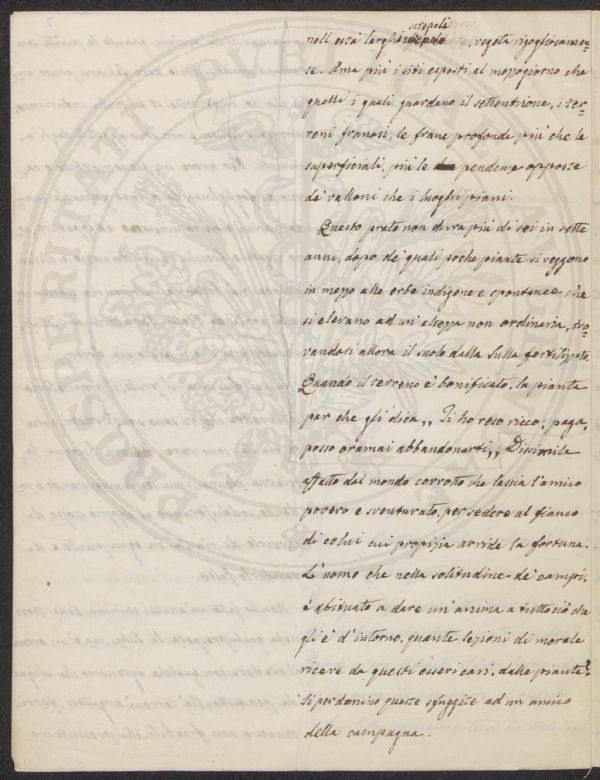 screpoli
nell'està larghi, vegeta rigogliosamen-
te. Ama più i siti esposti al mezzogiorno che
quelli i quali guardano il settentrione, i ter-
reni franosi, le frane profonde più che le
superficiali, più le pendenze opposte
de' valloni che i luoghi piani.
Questo prato non dura più di sei in sette
anni, dopo de' quali poche piante si veggono
in mezzo alle erbe indigene e spontanee che
si elevano ad un'altezza non ordinaria, tro-
vandosi allora il suolo dalla Sulla fertilizzato.
Quando il terreno è bonificato, la pianta
par che gli dica „ Ti ho reso ricco; paga,
posso oramai abbandonarti „ Dissimile
affatto dal mondo corrotto che lascia l'amico
povero e sventurato, per sedere al fianco
di colui cui propizia arride la fortuna.
L'uomo che nella solitudine de' campi,
è abituato a dare un'anima a tutto ciò che
gli è d'intorno, quante lezioni di morale
riceve da questi esseri cari, dalle piante!
Si perdonino queste sfuggite ad un amico
della campagna.
PROSPERITATI PUBLICAE